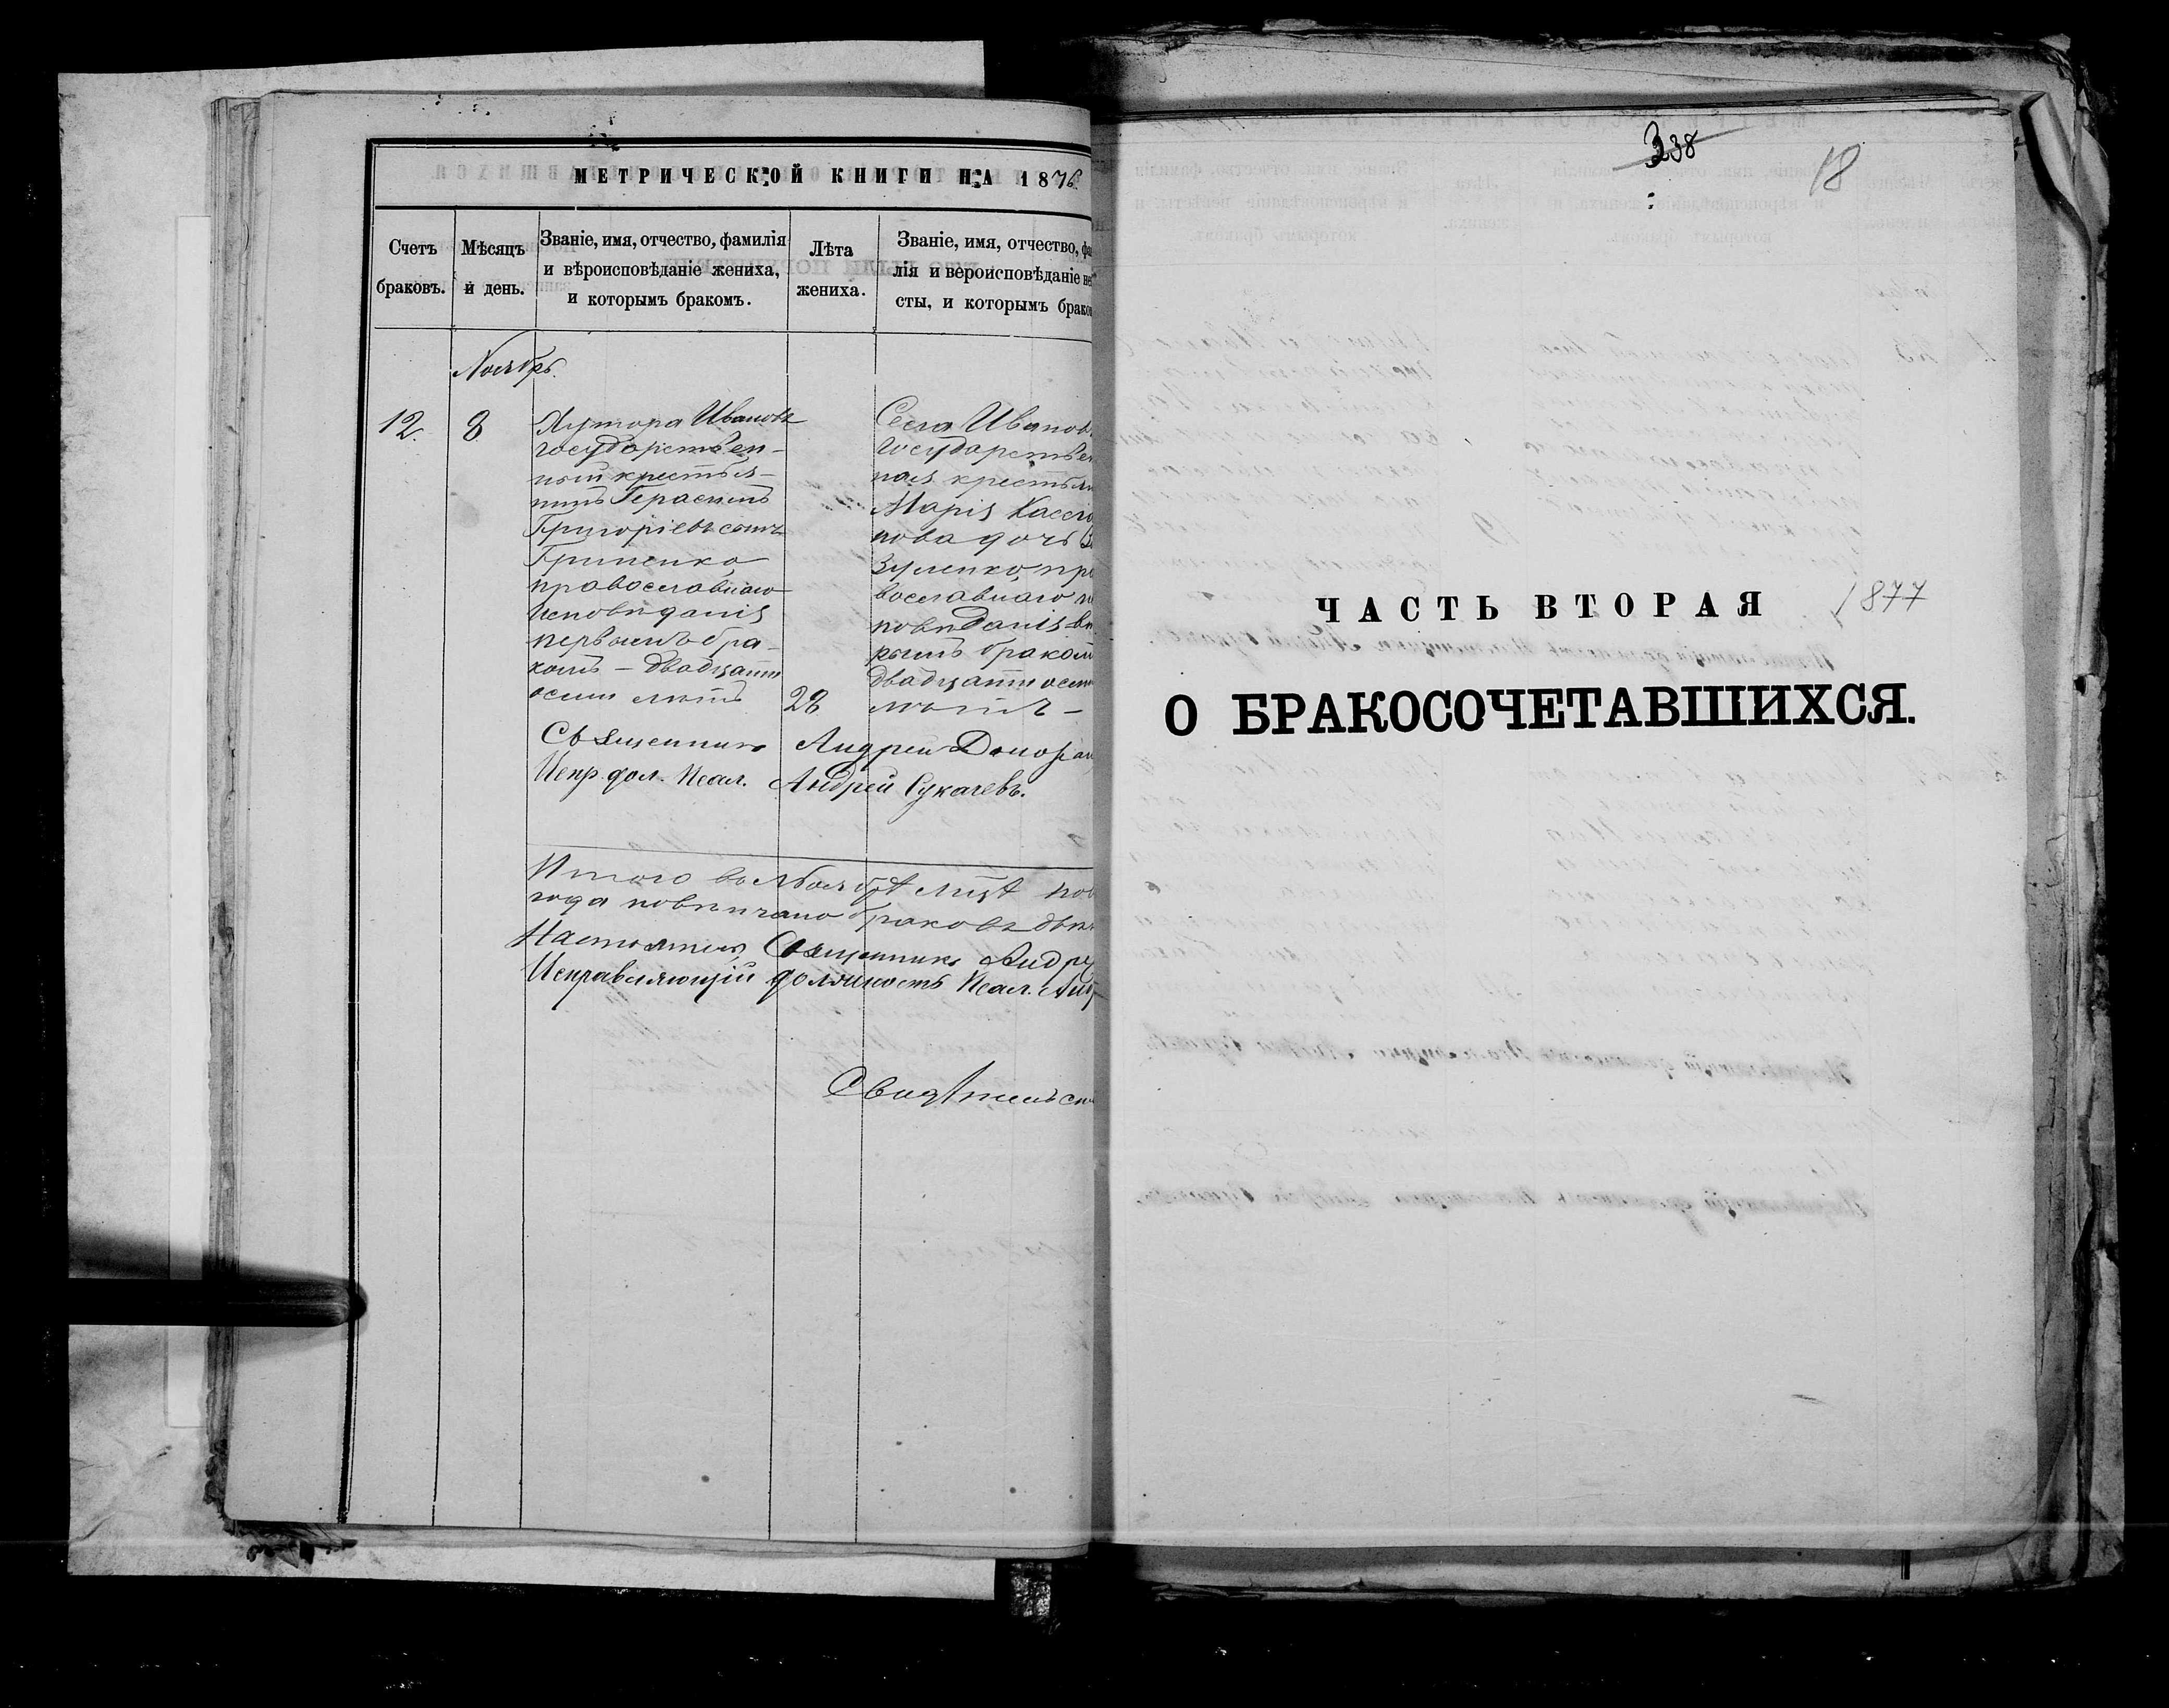 МЕТРИЧЕСКОЙ КНИГИ НА 1876.
Счетъ браковъ.
Мѣсяцъ и день.
Званіе, имя, отчество, фамилія
и вѣроисповѣданіе жениха,
и которымъ бракомъ.
Лѣта жениха.
Званіе, имя, отчество, фа
лія и вероисповѣданіе не
сты, и которымъ брако
Ноябрь.
12.
8
Хутора Иванова
государствен-
ный крестья-
нинъ Герасимъ
Григоріевъ сынъ
Гриненко,
православнаго
исповѣданія
первымъ бра-
комъ – двадцати
осми лѣтъ
28
Села Иванов
государствен
ная крестьян
Марія
нова дочь
Зуленко, пра
вославнаго ис
повѣданія вто
рымъ браком
двадцати осми
лѣтъ –
Священникъ Андрей
Испр. дол. Псал. Андрей Сукачевъ.
Итого въ Ноябрѣ м͠цѣ
года повѣнчано браковъ
Настоятель, Священникъ Андре
Исправляющій должность Псал. Анд
Свидѣтельств
338
18
ЧАСТЬ ВТОРАЯ
1877
О БРАКОСОЧЕТАВШИХСЯ.